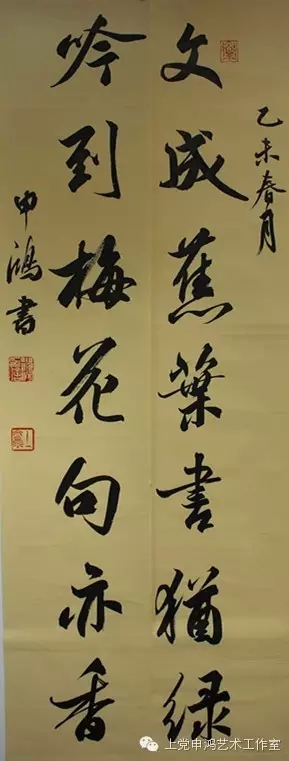 乙未春月
文成蕉葉書猶緑
吟到梅花句亦香
申鴻書
上党申鸿艺术工作室